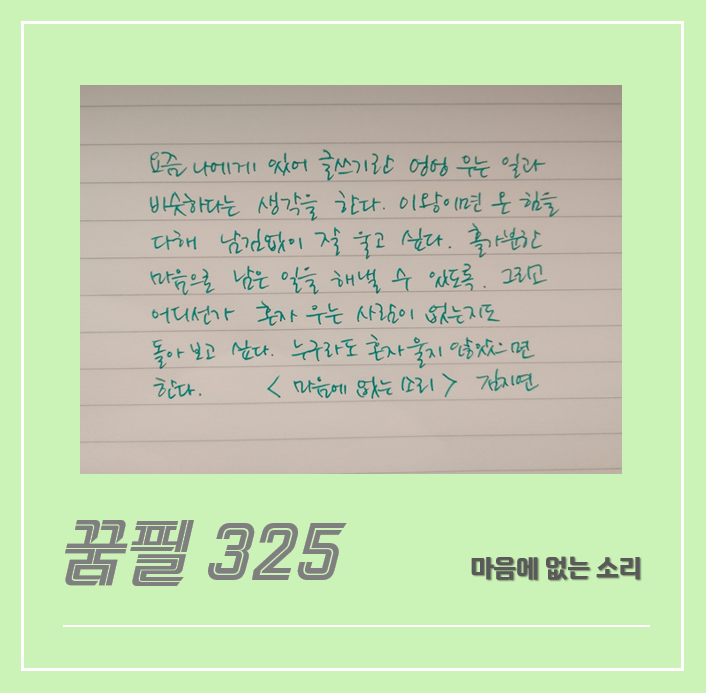 요즘 나에게 있어 글쓰기란 엉엉 우는 일과
비슷하다는 생각을 한다. 이왕이면 온 힘을
다해 남김없이 잘 울고 싶다. 홀가분한
마음으로 남은 일을 해낼 수 있도록. 그리고
어디선가 혼자 우는 사람이 없는지도
돌아보고 싶다. 누구라도 혼자 울지 않았으면
한다. < 마음에 없는 소리 > 김지연
꿈필 325
마음에 없는 소리